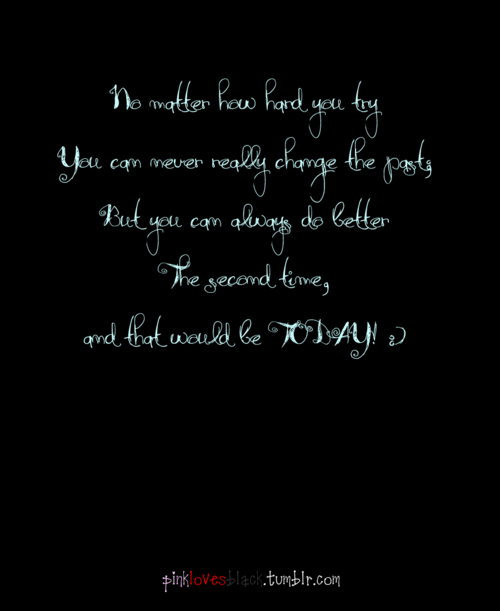 No matter how hard you try
You can never really change the past;
But you can always do better
The second time,
and that would be TODAY! :)
pinklovesblack.tumblr.com